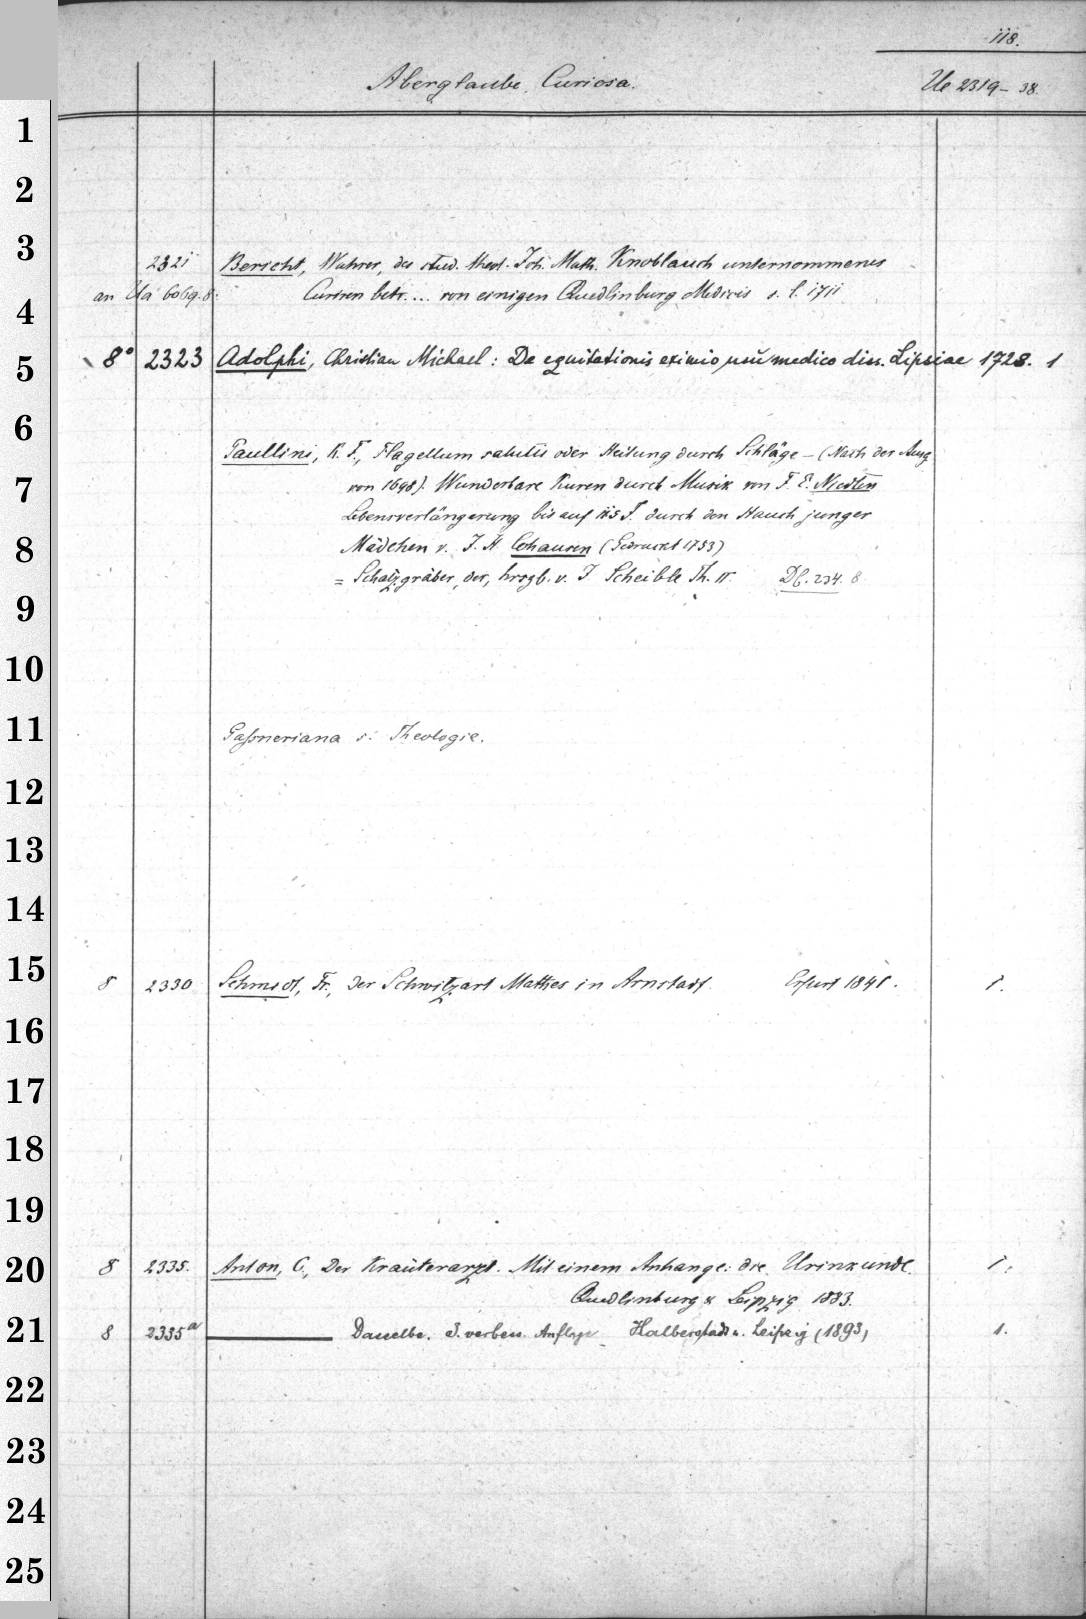 118.
Aberglaube, Curiosa. Ue 2319-38.
1
2
3
2321 Bericht, Wahrer, des stud. theol. Joh. Math. Knoblauch unternommenes
an Ua 6019.8: Curiren betr... von einigen Quedlinburg Medicis s. l. 1711
4
8° 2323 Adolphi, Christian Michael: De equitationis eximio usu medico diss. Lipsiae 1728. 1
5
6
Paullini, K. F., Flagellum salutis oder Heilung durch Schläge - (Nach der Ausg
von 1698). Wunderbare Kuren durch Musik von F. E. Niedten
7
Lebensverlängerung bis auf 115 J. durch den Hauch junger
Mädchen v. J. H Cohausen (Gedruckt 1753)
8
= Schatzgräber, der, hrsgb. v. J Scheible Th. II. Db. 234. 8
9
10
11
Gassneriana s. Theologie.
12
13
14
15
8 2330 Schmidt, Fr., Der Schwitzart Mathes in Arnstadt. Erfurt 1841. 1.
16
17
18
19
20
8 2335. Anton, C., Der Kräuterarzt. Mit einem Anhange: die Urinkunde. 1.
Quedlinburg & Leipzig 1883.
21
8 2335a Dasselbe. 3. verbess. Auflage Halberstadt u. Leipzig (1893) 1.
22
23
24
25